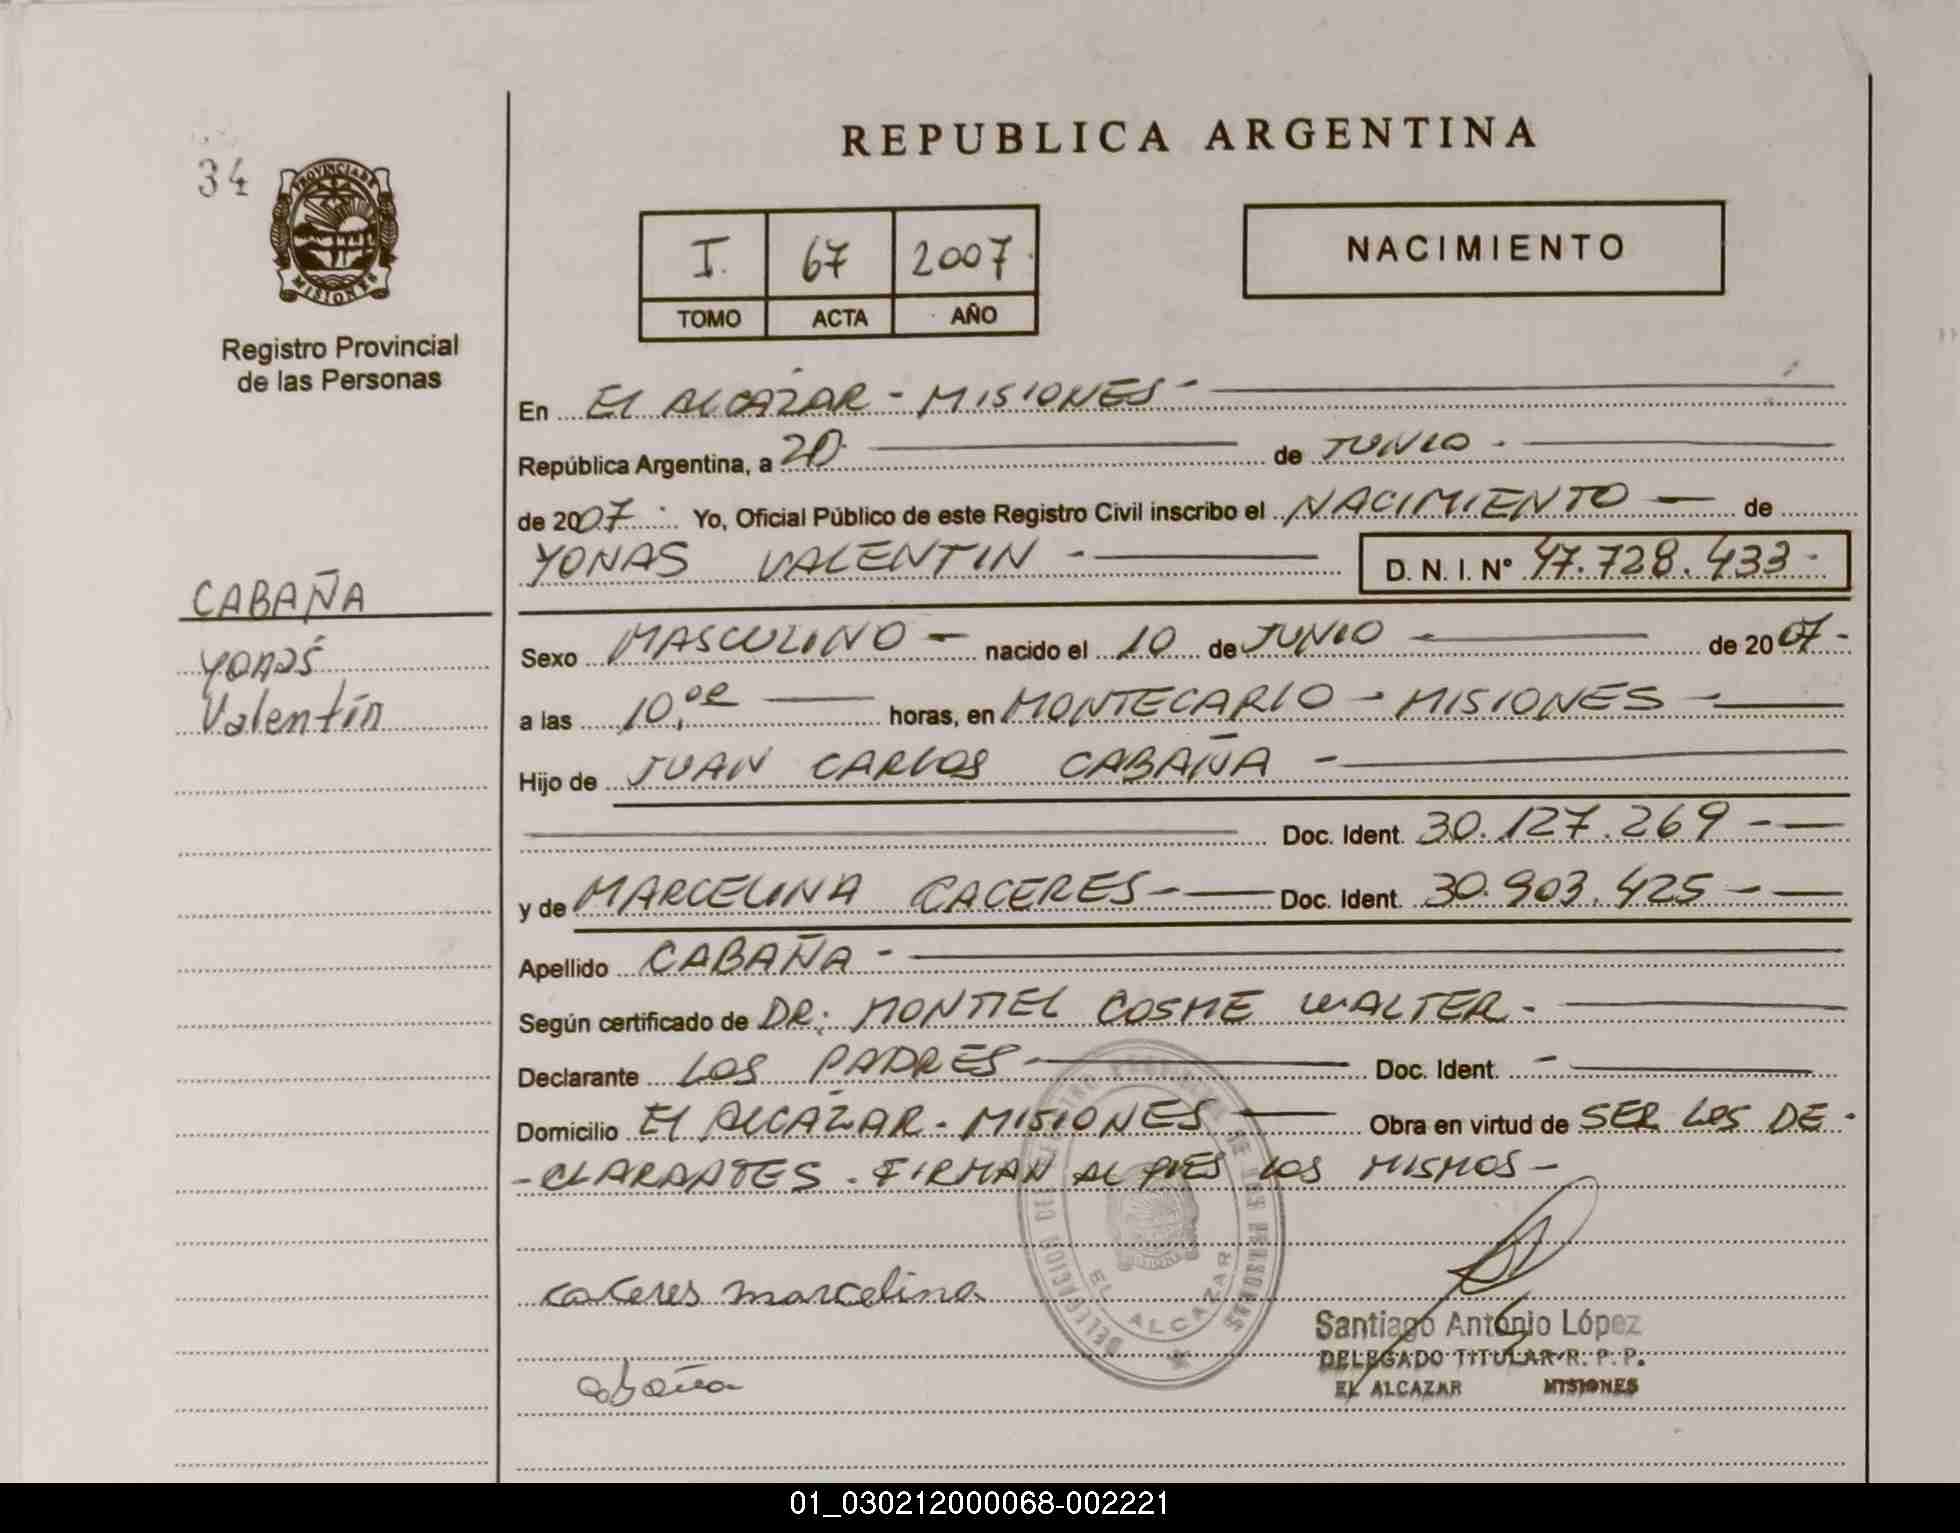 REPUBLICA ARGENTINA
34
PROVINCIA DE
MISIONES
Registro Provincial
de las Personas
I. 67 2007.
TOMO ACTA AÑO
NACIMIENTO
En El ALCAZAR - MISIONES -
República Argentina, a 20 de JUNIO -
de 2007. Yo, Oficial Público de este Registro Civil inscribo el NACIMIENTO — de
YONAS VALENTIN - D. N. I. N° 47.728.433 -
CABAÑA
YONAS
Valentín
Sexo MASCULINO - nacido el 10 de JUNIO - de 2007-
a las 10, horas, en MONTECARLO - MISIONES -
Hijo de JUAN CARLOS CABAÑA -
Doc. Ident. 30.127.269 -
y de MARCELINA CACERES - Doc. Ident. 30.903.425 -
Apellido CABAÑA -
Según certificado de DR. MONTIEL COSME WALTER -
Declarante LOS PADRES - Doc. Ident. -
Domicilio El ALCAZAR - MISIONES Obra en virtud de SER LOS DE -
- CLARANTES - FIRMAN AL PIES LOS MISMOS -
caceres marcelina
EL ALCAZAR
Santiago Antonio López
DELEGADO TITULAR R. P. P.
EL ALCAZAR MISIONES
01_030212000068-002221